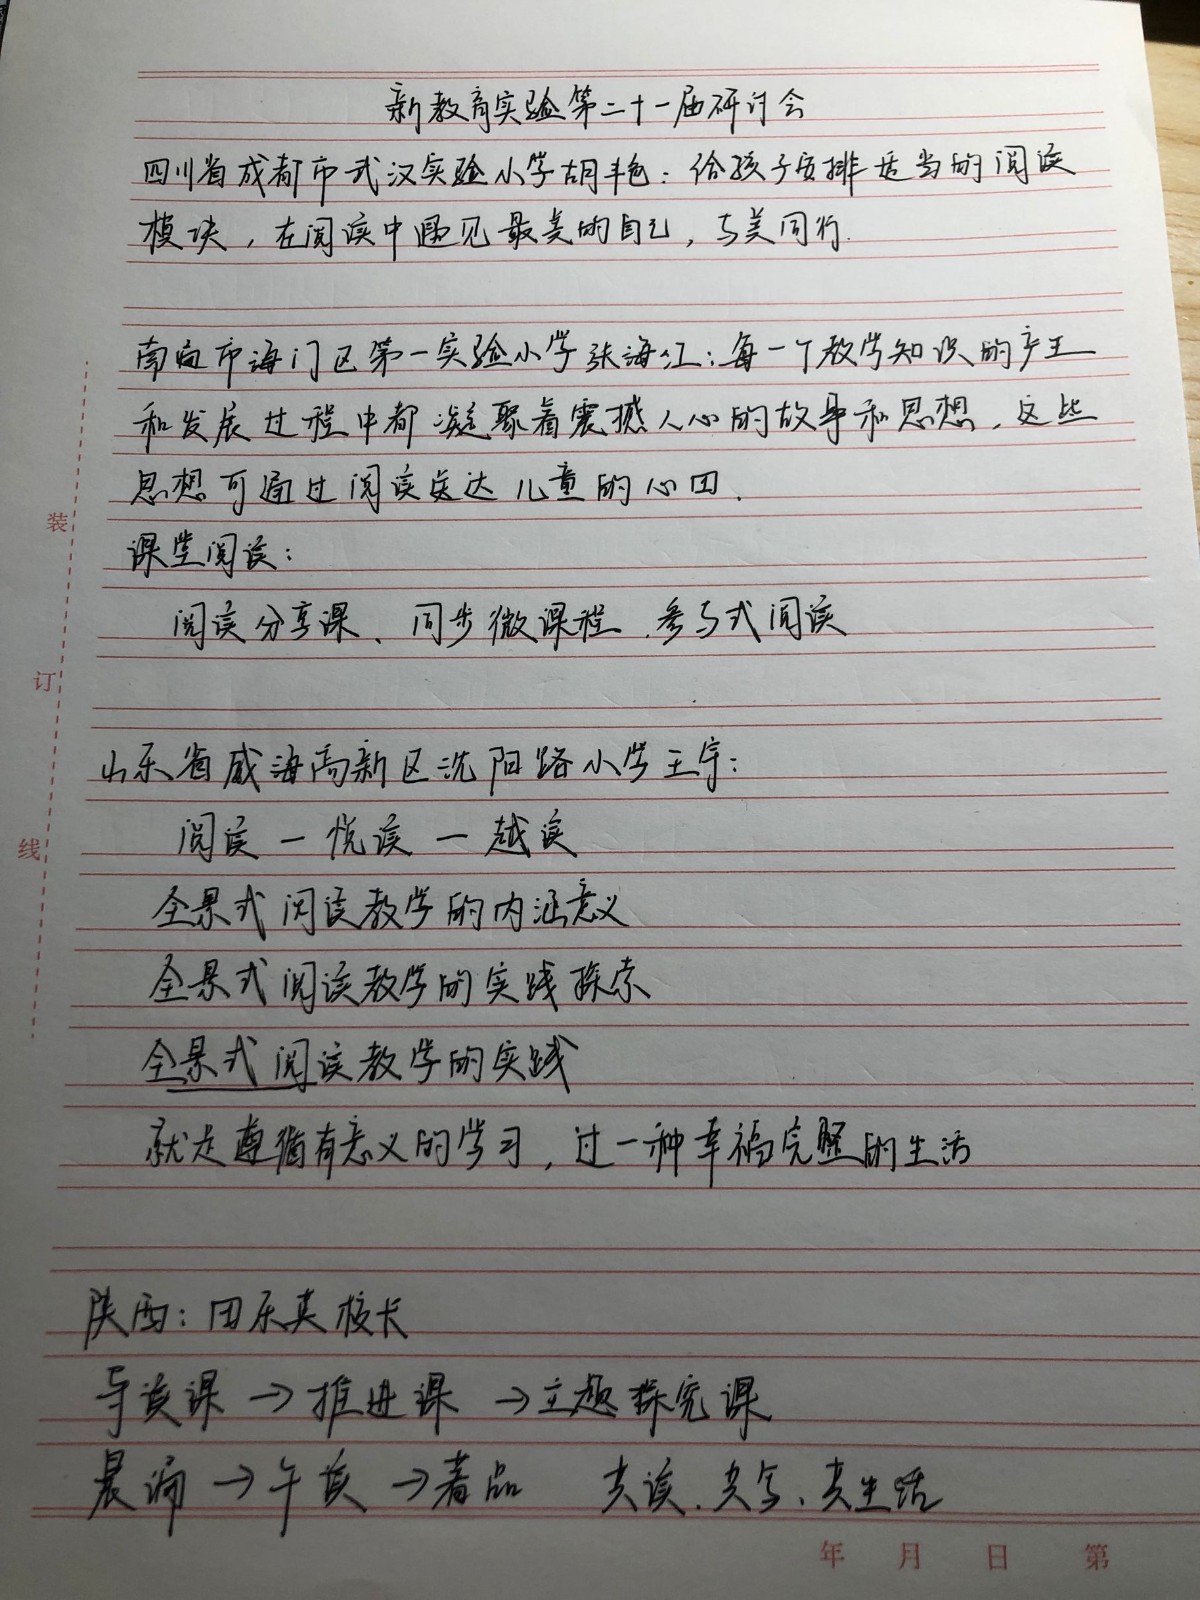 新教育实验第二十一届研讨会
四川省成都市武汉实验小学胡艳：给孩子安排适当的阅读
模块，在阅读中遇见最美的自己，与美同行.
南通市海门区第一实验小学张海红：每一个数学知识的产生
和发展过程中都凝聚着震撼人心的故事和思想，这些
思想可通过阅读达儿童的心田.
课堂阅读：
阅读分享课、同步微课程、参与式阅读
装
山东省威海高新区沈阳路小学王宇：
订
阅读－悦读－越读
线
全景式阅读教学的内涵意义
全景式阅读教学的实践探索
全景式阅读教学的实践
就是遵循有意义的学习，过一种幸福完整的生活
陕西：田乐英校长
导读课→推进课→主题探究课
晨诵→午读→暮品 共读、共写、共生活
年 月 日 第